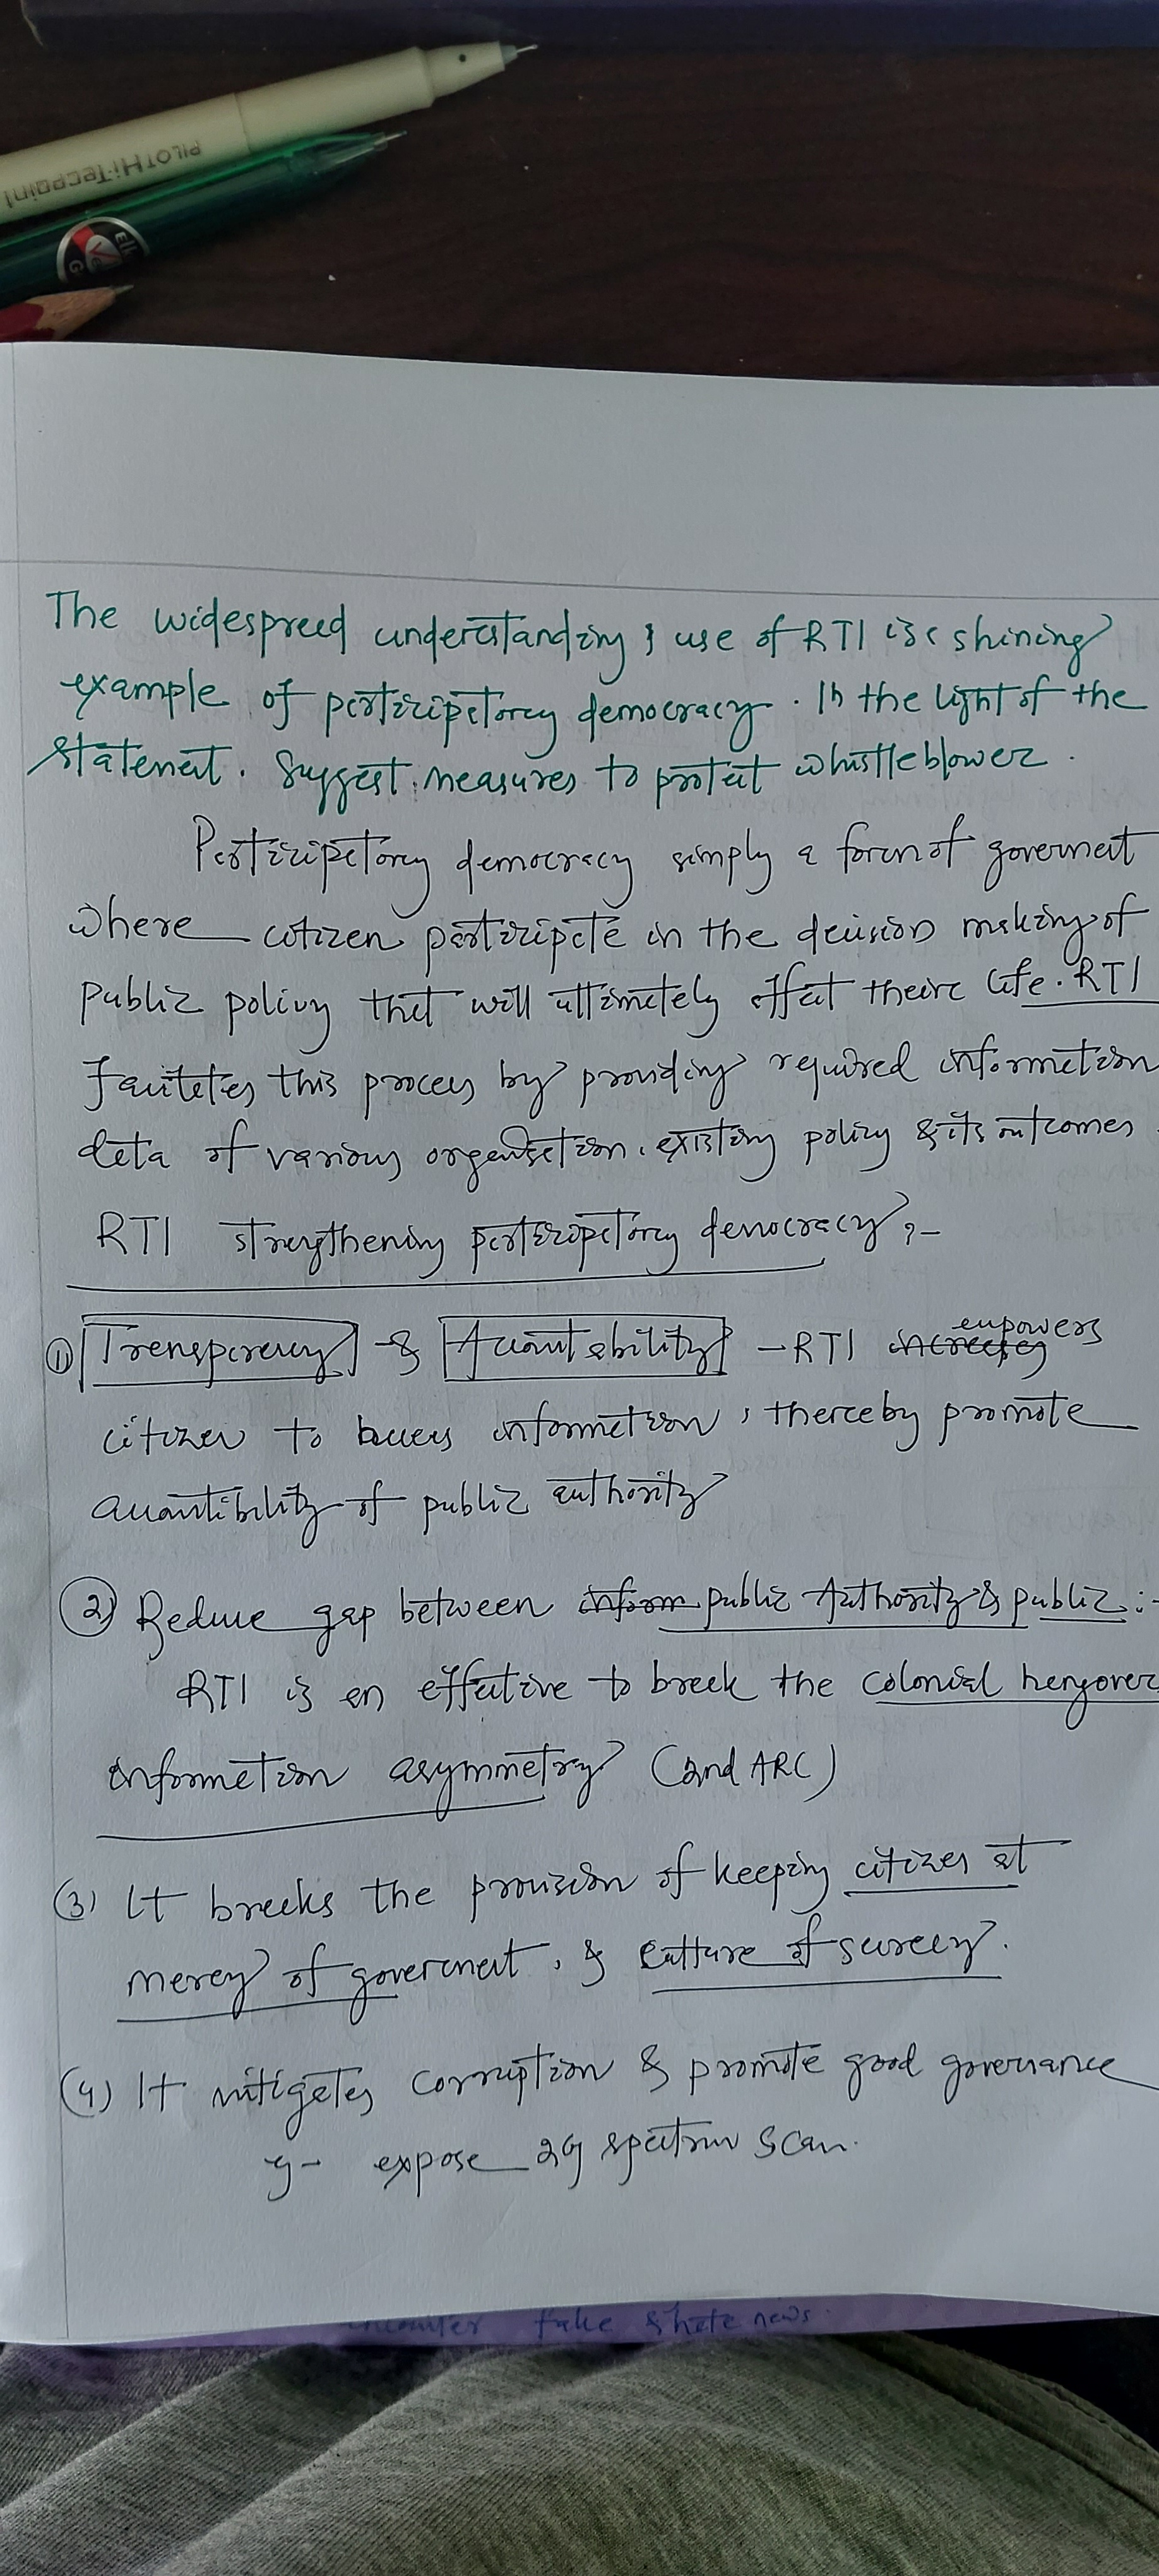 PILOT Hi-Tecpoint
The widespreed understanding & use of RTI is a shining
example of participatory democracy. In the light of the
statement. Suggest measures to protect whistleblower.
Participatory democracy simply a form of government
where citizen participate in the decision making of
public policy that will ultimately effect their life. RTI
facilitates this process by providing required information
data of various organisation, existing policy & its outcomes.
RTI strengthening participatory democracy :-
① Transparency & Accountability - RTI increases empowers
citizen to access information, thereby promote
accountibility of public authority
② Reduce gap between inform public Authority & public :-
RTI is an effective to break the colonial hangover
information asymmetry (2nd ARC)
(3) It breaks the provision of keeping citizen at
mercy of government, & culture of secrecy.
(4) It mitigates corruption & promote good governance
eg - expose 2G spectrum scam.
fake & hate news.